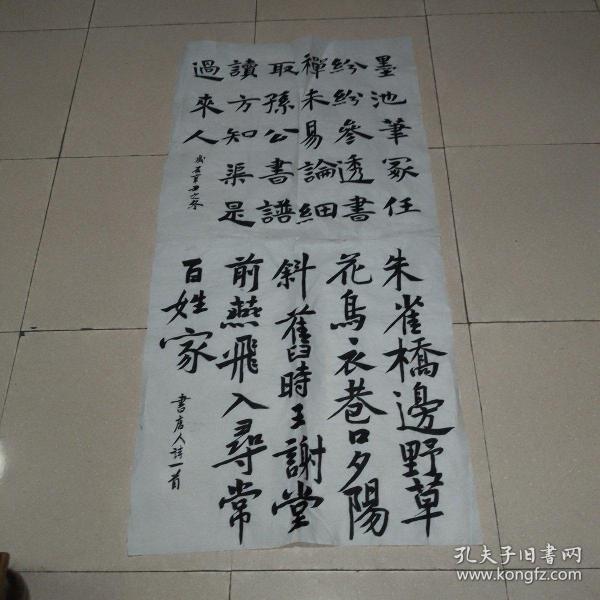 墨池筆冢任
紛紛參透書
禪未易論細
取孫公書譜
讀方知渠是
過來人
朱雀橋邊野草
花烏衣巷口夕陽
斜舊時王謝堂
前燕飛入尋常
百姓家
書唐人詩一首
孔夫子旧书网
www.kongfz.com